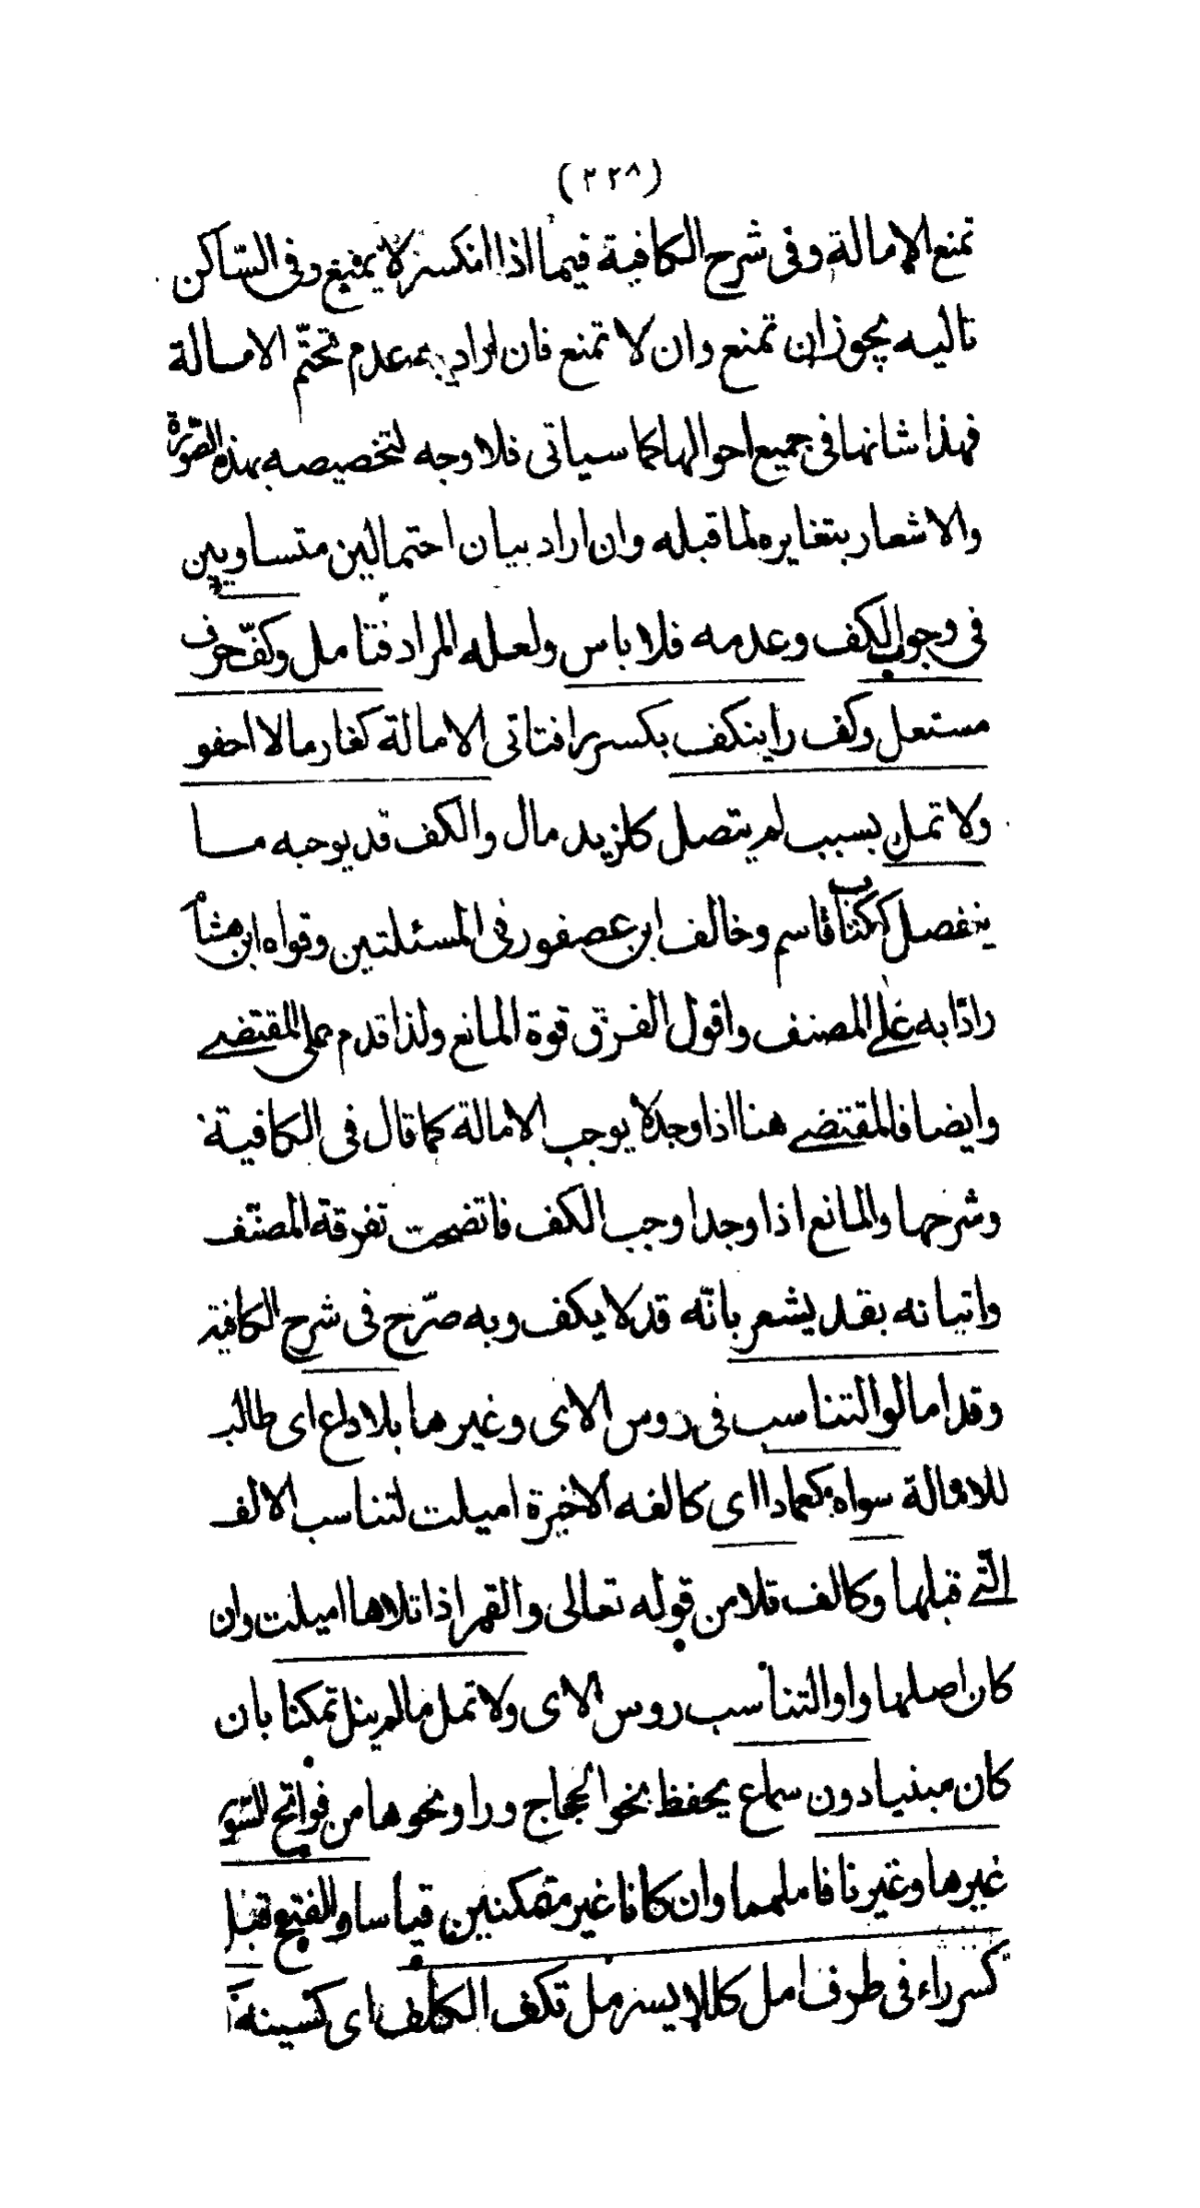 (٢٢٨)
تمنع الإمالة وفى شرح الكافية فيما اذا انكسر لا يمنع وفى السّاكن
تاليه يجوز ان تمنع وان لا تمنع فان اراد به عدم تحتّم الامالة
فهذا شانها فى جميع احوالها كما سياتى فلا وجه لتخصيصه بهذه الصّورة
والاشعار بتغايره لما قبله وان اراد بيان احتمالين متساويين
فى وجوب الكف وعدمه فلا باس ولعله المراد فتامل وكفّ حرف
مستعل وكف را ينكف بكسر را فتاتى الامالة كغارما لا احفو
ولا تمل بسبب لم يتصل كلزيد مال والكف قد يوجبه مـا
ينفصل ككتاب قاسم وخالف ابن عصفور فى المسئلتين وقواه ابن هشام
رادّا به على المصنف واقول الفرق قوة المانع ولذا قدم على المقتضى
وايضا فالمقتضى هنا اذا وجد لا يوجب الامالة كما قال فى الكافية
وشرحها والمانع اذا وجد اوجب الكف فاتضحت تفرقة المصنّف
واتيانه بقد يشعر بانّه قد لا يكف وبه صرّح فى شرح الكافية
وقد امالوا لتناسب فى روس الاى وغيرها بلا داع اى طالب
للامالة سواه كعمادا اى كالفه الاخيرة اميلت لتناسب الالف
الّتى قبلها وكالف تلا من قوله تعالى والقمر اذا تلاها اميلت وان
كان اصلها واوا لتناسب روس الاى ولا تمل ما لم ينل تمكنا بان
كان مبنيا دون سماع يحفظ نحو الحجاج ورا ونحوها من فواتح السّور
غيرها وغيرنا فاملهما وان كانا غير متمكنين قياسا والفتح قبل
كسر راء فى طرف امل كللايسر مل تكف الكلف اى كسينه